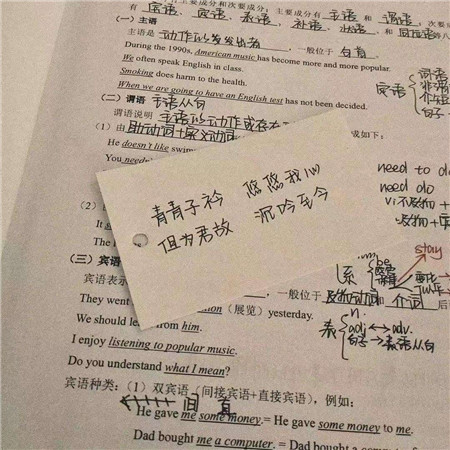 有主要成分和次要成分；主要成分有 主语 和 谓语，次要
有 宾语、定语、表语、补语、状语、和 同位语
（一）主语
主语是 动作的发出者 ，一般位于 句首 。
During the 1990s, American music has become more and more popular.
We often speak English in class.
Smoking does harm to the health.
When we are going to have an English test has not been decided.
主语从句
（二）谓语
谓语说明 主语的动作或存在
（1）由 助动词+实义动词 或如下：
He doesn't like swim
You needn't
need to do
need do
vi不及物
及物
青青子衿 悠悠我心
但为君故 沉吟至今
（2）
It
The
（三）宾语
stay
系 be
宾语表示 ，一般位于 及物动词 介词 后
They went (展览) yesterday.
We should from him.
I enjoy listening to popular music.
Do you understand what I mean?
表 n.
adj ↔ adv.
句子→表语从句
宾语种类：（1）双宾语（间接宾语+直接宾语），例如：
间 直
He gave me some money.= He gave some money to me.
Dad bought me a computer. = Dad bought a computer